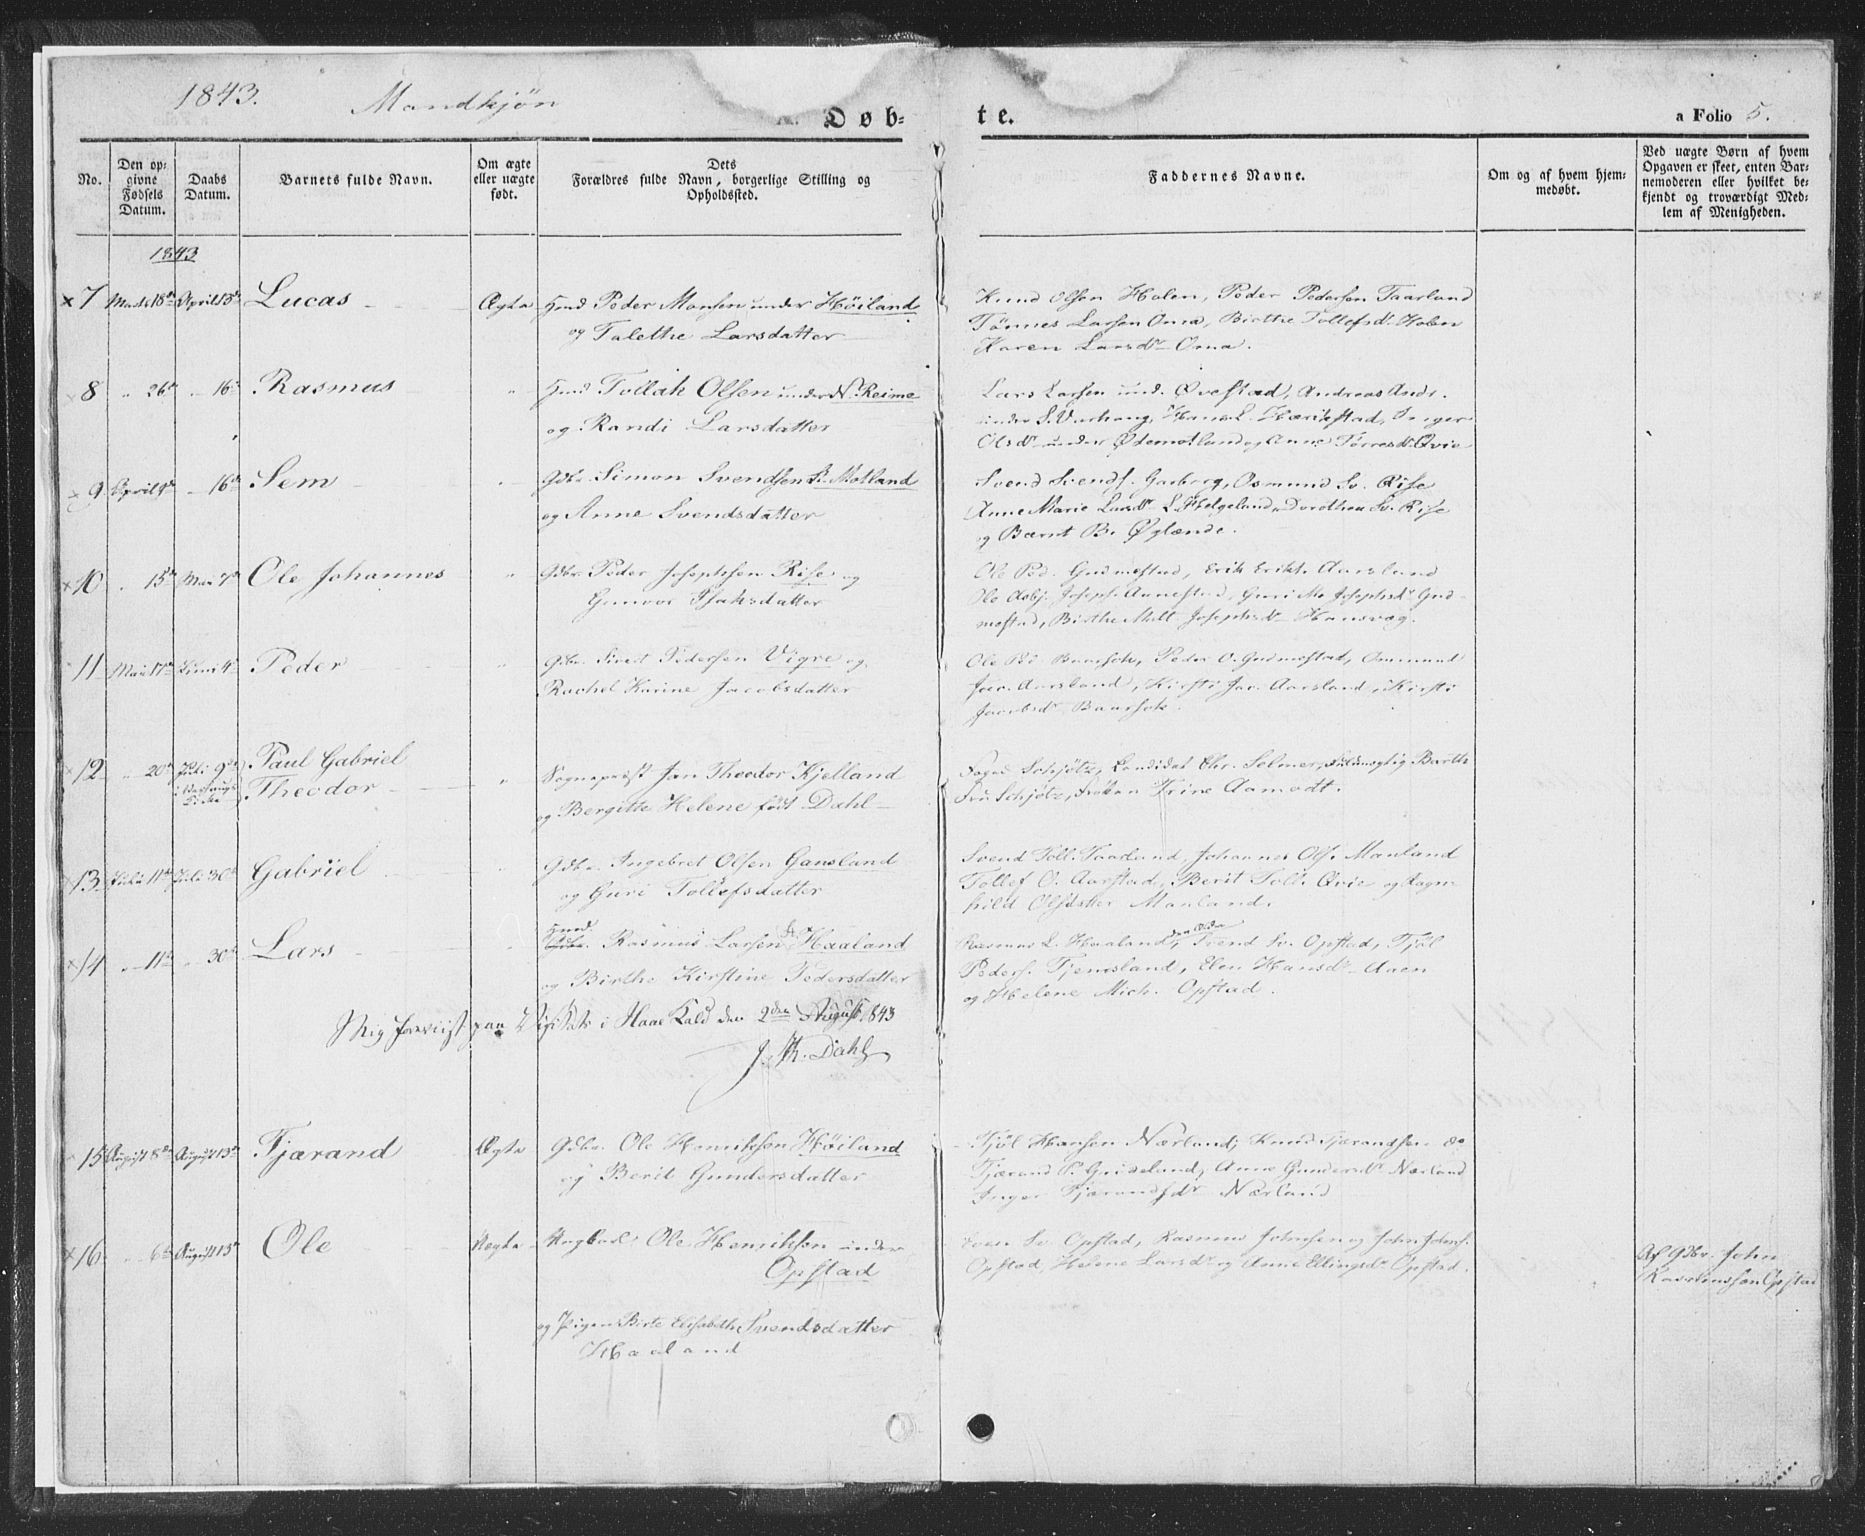 1843. Mandkjøn
Døb-
te.
a Folio 5.
No.
Den op-
givne
Fødsels
Datum.
Daabs
Datum.
Barnets fulde Navn.
Om ægte
eller uægte
født.
Dets
Forældres fulde Navn, borgerlige Stilling og
Opholdssted.
Faddernes Navne.
Om og af hvem hjem-
medøbt.
Ved uægte Børn af hvem
Opgaven er skeet, enten Bar-
nemoderen eller hvilket be-
kjendt og troværdigt Med-
lem af Menigheden.
1843
× 7 Marts 18de April 13de Lucas Ægte Huusmd Peder Monsen under Høiland
og Talethe Larsdatter
Knud Olsen Holen, Peder Pedersen Taarland
Tønnes Larsen Oma, Birthe Tollefsdr Holen
Karen Larsdr Oma.
× 8 " 26de " 16de Rasmus " Tollak Olsen under N. Reime
og Randi Larsdatter
Lars Larsen und. Øvestad, Andreas Andr.
under S. Varhaug, Hans L. Hærikstad, Inger
Olsdr under Ødemotland og Anne Torresdr Qvie
× 9 April 9de " 16de Sem " Gdbr. Simon Svendsen L. Motland
og Anne Svendsdatter
Svend Svends. Gudberg, Osmund Sv. Rise
Anne Marie Larsdr L. Helgeland, Dorothea Sv. Rise
og Barnt B. Øglænde.
× 10 " 15de Mai 7de Ole Johannes " Gdbr. Peder Josephsen Rise og
Gunvor Isaksdatter
Ole Ped. Gudmestad, Erik Eriks. Aarsland
Ole Asbj. Joseph. Aanestad, Guri Mo Josephsdr Gud-
mestad, Birthe Malt. Josephsdr Hansvog.
11 Mai 17de Juni 4de Peder " Gdbr. Sivert Pedersen Vigre og
Rachel Karine Jacobsdatter
Ole Ped. Baussek, Peder O. Gudmestad, Ommund
Jac. Aarsland, Kirsti Jac. Aarsland, Kirsti
Jacobsdr
× 12 " 20de Juli 9de Paul Gabriel
i Varhaugs
Kirke
Theodor " Sognepræst Jan Theodor Kjelland
og Bergitte Helene født Dahl
Foged Schjøtz, Candidat Chr. Selmer, Fuldmægtig Barth
Fru Schjøtz, Frøken Trine Aamodt.
× 13 Juli 11de Juli 30de Gabriel " Gdbr. Ingebret Olsen Gausland
og Guri Tollefsdatter
Svend Toll. Taarland, Johannes Ols. Manland
Tollef O. Aarstad, Berit Toll. Qvie og Ragn-
hild Olsdatter Manland.
× 14 " 11de " 30de Lars " Huusmd
Gdbr. Rasmus Larsen Haaland
og Birthe Kirstine Pedersdatter
Rasmus L. Haaland, Svend Sv. Opstad, Tjøl
Peders. Tjemsland, Elen Hansdr Aaen
og Helene Mich. Opstad.
Mig foreviist paa Visitats i Haae Kald den 2den August 1843
J. Th. Dahl
15 August 8de August 13de Tjærand Ægte Gdbr. Ole Henriksen Høiland
og Berit Gundersdatter
Tjøl Hansen Nærland, Knud Tjærandsen do
Tjærand P. Grødeland, Anne Gundersdr Nærland
Inger Tjærandsdr Nærland
× 16 " 6te August 13de Ole Uægte Ungkarl Ole Henriksen under
Opstad
og Pigen Birte Elisabeth Svendsdatter
Haaland
Sven Sv. Opstad, Rasmus Johnsen og John Johns.
Opstad, Helene Larsdr og Anne Ellingsdr Opstad.
Af Gdbr. John
Rasmussen Opstad